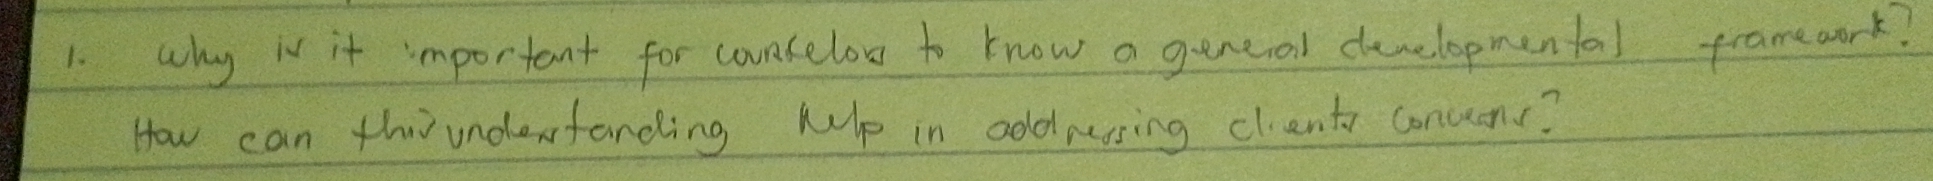 1. Why is it important for counselors to know a general developmental framework?
How can this understanding help in addressing clients concerns?